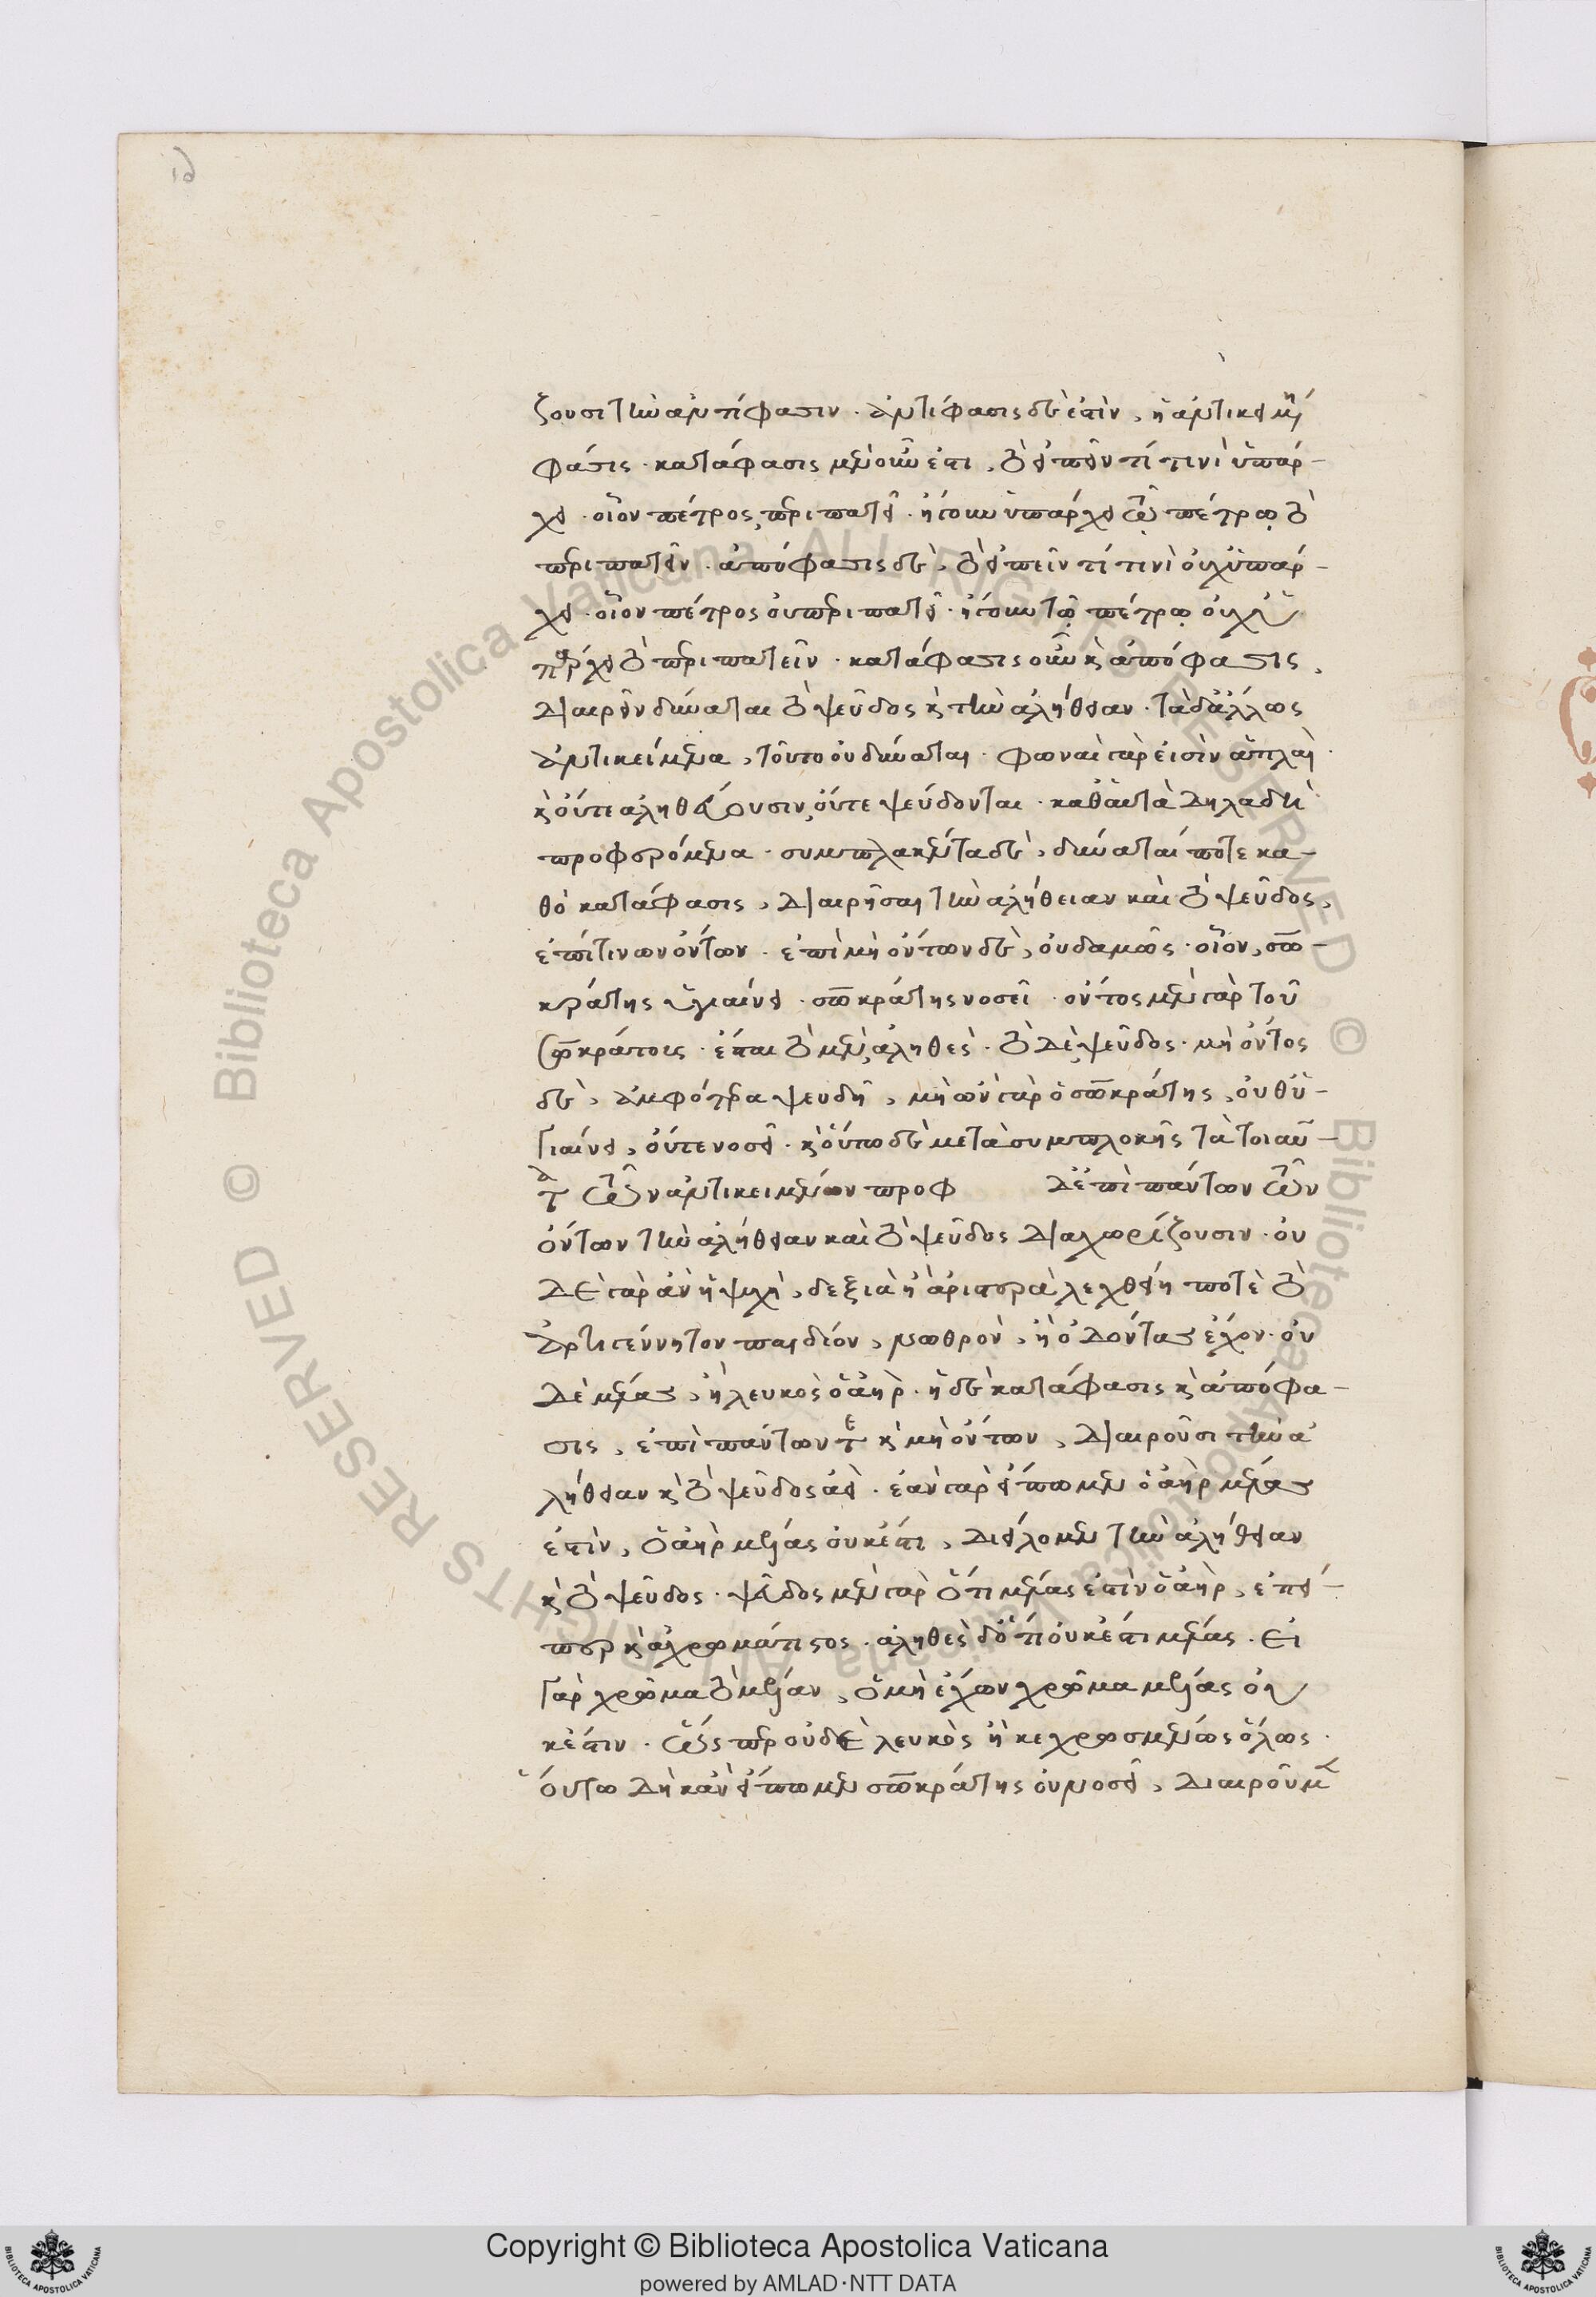 ζουσι τὴν ἀντίφασιν. ἀντίφασις δέ ἐστιν, ἡ ἀντικειμένη
φάσις. κατάφασις μὲν οὖν ἐστι, τὸ εἰπεῖν τί τινι ὑπάρ-
χει. οἷον πέτρος περιπατεῖ. ἤγουν ὑπάρχει τῷ πέτρῳ τὸ
περιπατεῖν. ἀπόφασις δέ, τὸ εἰπεῖν τί τινι οὐχ ὑπάρ-
χει. οἷον πέτρος οὐ περιπατεῖ. ἤγουν τῷ πέτρῳ οὐχ ὑ
πάρχει τὸ περιπατεῖν. κατάφασις οὖν καὶ ἀπόφασις,
διαιρεῖν δύναται τὸ ψεῦδος καὶ τὴν ἀλήθειαν. τὰ δ' ἄλλως
ἀντικείμενα, τοῦτο οὐ δύναται. φωναὶ γάρ εἰσιν ἁπλαῖ
καὶ οὔτε ἀληθεύουσιν, οὔτε ψεύδονται. καθ' αὑτὰ δηλαδὴ
προφερόμενα. συμπλακέντα δέ, δύναταί ποτε κα-
θὸ κατάφασις, διαιρῆσαι τὴν ἀλήθειαν καὶ τὸ ψεῦδος,
ἐπί τινων ὄντων. ἐπὶ μὴ ὄντων δέ, οὐδαμῶς. οἷον, σω-
κράτης ὑγιαίνει. σωκράτης νοσεῖ. ὄντος μὲν γὰρ τοῦ
σωκράτους. ἔσται τὸ μὲν, ἀληθές. τὸ δὲ, ψεῦδος. μὴ ὄντος
δέ, ἀμφότερα ψευδῆ, μὴ ὢν γὰρ ὁ σωκράτης, οὔθ' ὑ-
γιαίνει, οὔτε νοσεῖ. καὶ οὔπω δὲ μετὰ συμπλοκῆς τὰ τοιαῦ-
τα τῶν ἀντικειμένων προφ δὲ ἐπὶ πάντων τῶν
ὄντων τὴν ἀλήθειαν καὶ τὸ ψεῦδος διαχωρίζουσιν. οὐ
δὲ γὰρ ἂν ἡ ψυχὴ, δεξιὰ ἢ ἀριστερὰ λεχθείη ποτὲ τὸ
ἀρτιγέννητον παιδίον, νωθρὸν, ἢ ὀδόντας ἔχον. οὐ
δὲ μέλας, ἢ λευκὸς ὁ ἀήρ. ἡ δὲ κατάφασις καὶ ἀπόφα-
σις, ἐπὶ πάντων τε καὶ μὴ ὄντων, διαιροῦσι τὴν ἀ
λήθειαν καὶ τὸ ψεῦδος ἀεί. ἐὰν γὰρ εἴπωμεν ὁ ἀὴρ μέλας
ἐστὶν, ὁ ἀὴρ μέλας οὐκ ἔστι, διείλομεν τὴν ἀλήθειαν
καὶ τὸ ψεῦδος. ψεῦδος μὲν γὰρ ὅτι μέλας ἐστὶν ὁ ἀήρ, ἐπεί-
περ καὶ ἀχρωμάτιστος. ἀληθὲς δ' ὅτι οὐκ ἔστι μέλας. εἰ
γὰρ χρῶμα τὸ μέλαν, ὁ μὴ ἔχων χρῶμα μέλας οὐ
κ ἔστιν. ὥσπερ οὐδὲ λευκὸς ἢ κεχρωσμένος ὅλως.
οὕτω δὴ κἂν εἴπωμεν σωκράτης οὐ νοσεῖ, διαιροῦμεν
Copyright © Biblioteca Apostolica Vaticana
powered by AMLAD·NTT DATA